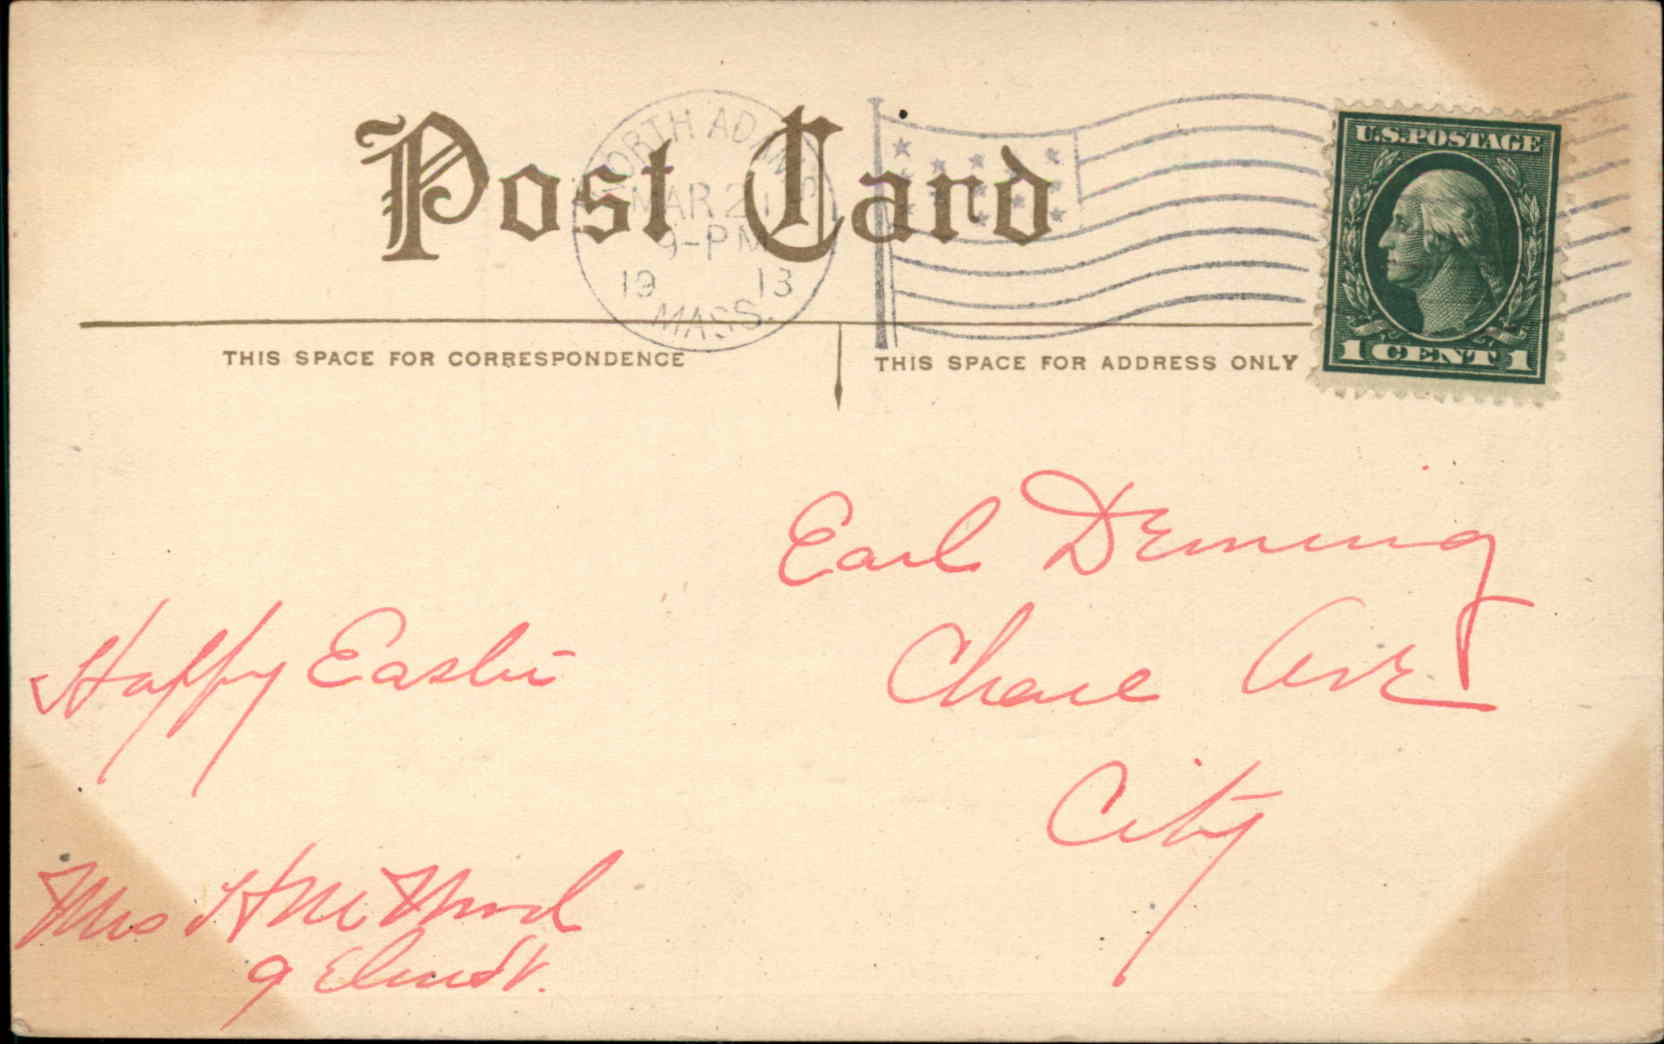 Post Card
NORTH ADAMS
MAR 21
9-PM
19 13
MASS.
U.S.POSTAGE
1 CENT 1
THIS SPACE FOR CORRESPONDENCE
THIS SPACE FOR ADDRESS ONLY
Earl Deming
Chase Ave
City
Happy Easter
Mrs H
9 Elm St.